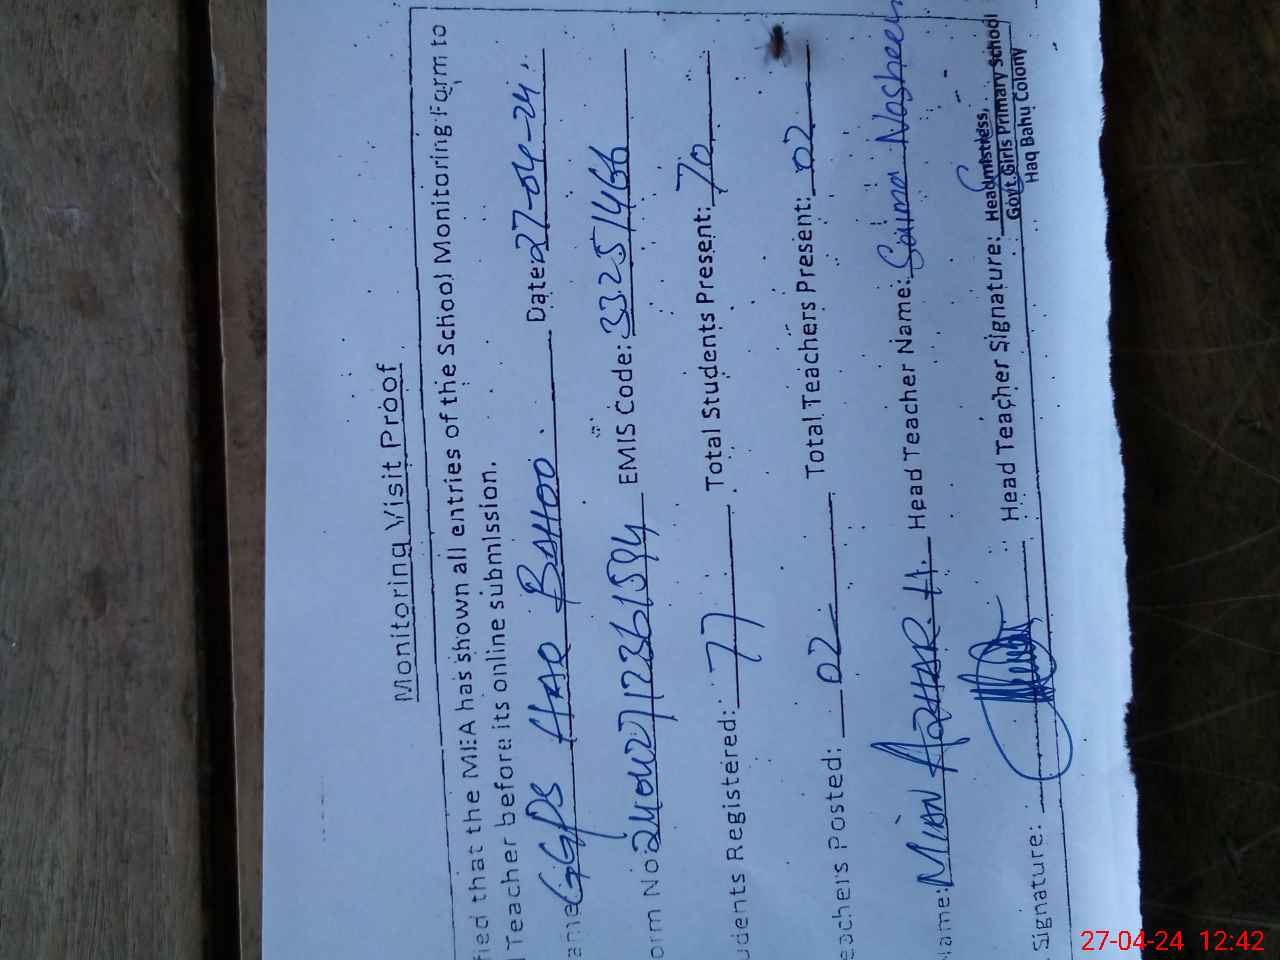 Monitoring Visit Proof
fied that the MEA has shown all entries of the School Monitoring Form to
Teacher before its online submission.
ame: GGPS HAQ BAHOO. Date: 27-04-24.
orm No: 24042712361594 EMIS Code: 33251466
udents Registered: 77 Total Students Present: 70
eachers Posted: 02 Total Teachers Present: 02
Name: MIAN AZHAR H. Head Teacher Name: Saima Nosheen
Signature: Head Teacher Signature: Headmistress,
Govt. Girls Primary School
Haq Bahu Colony
27-04-24 12:42